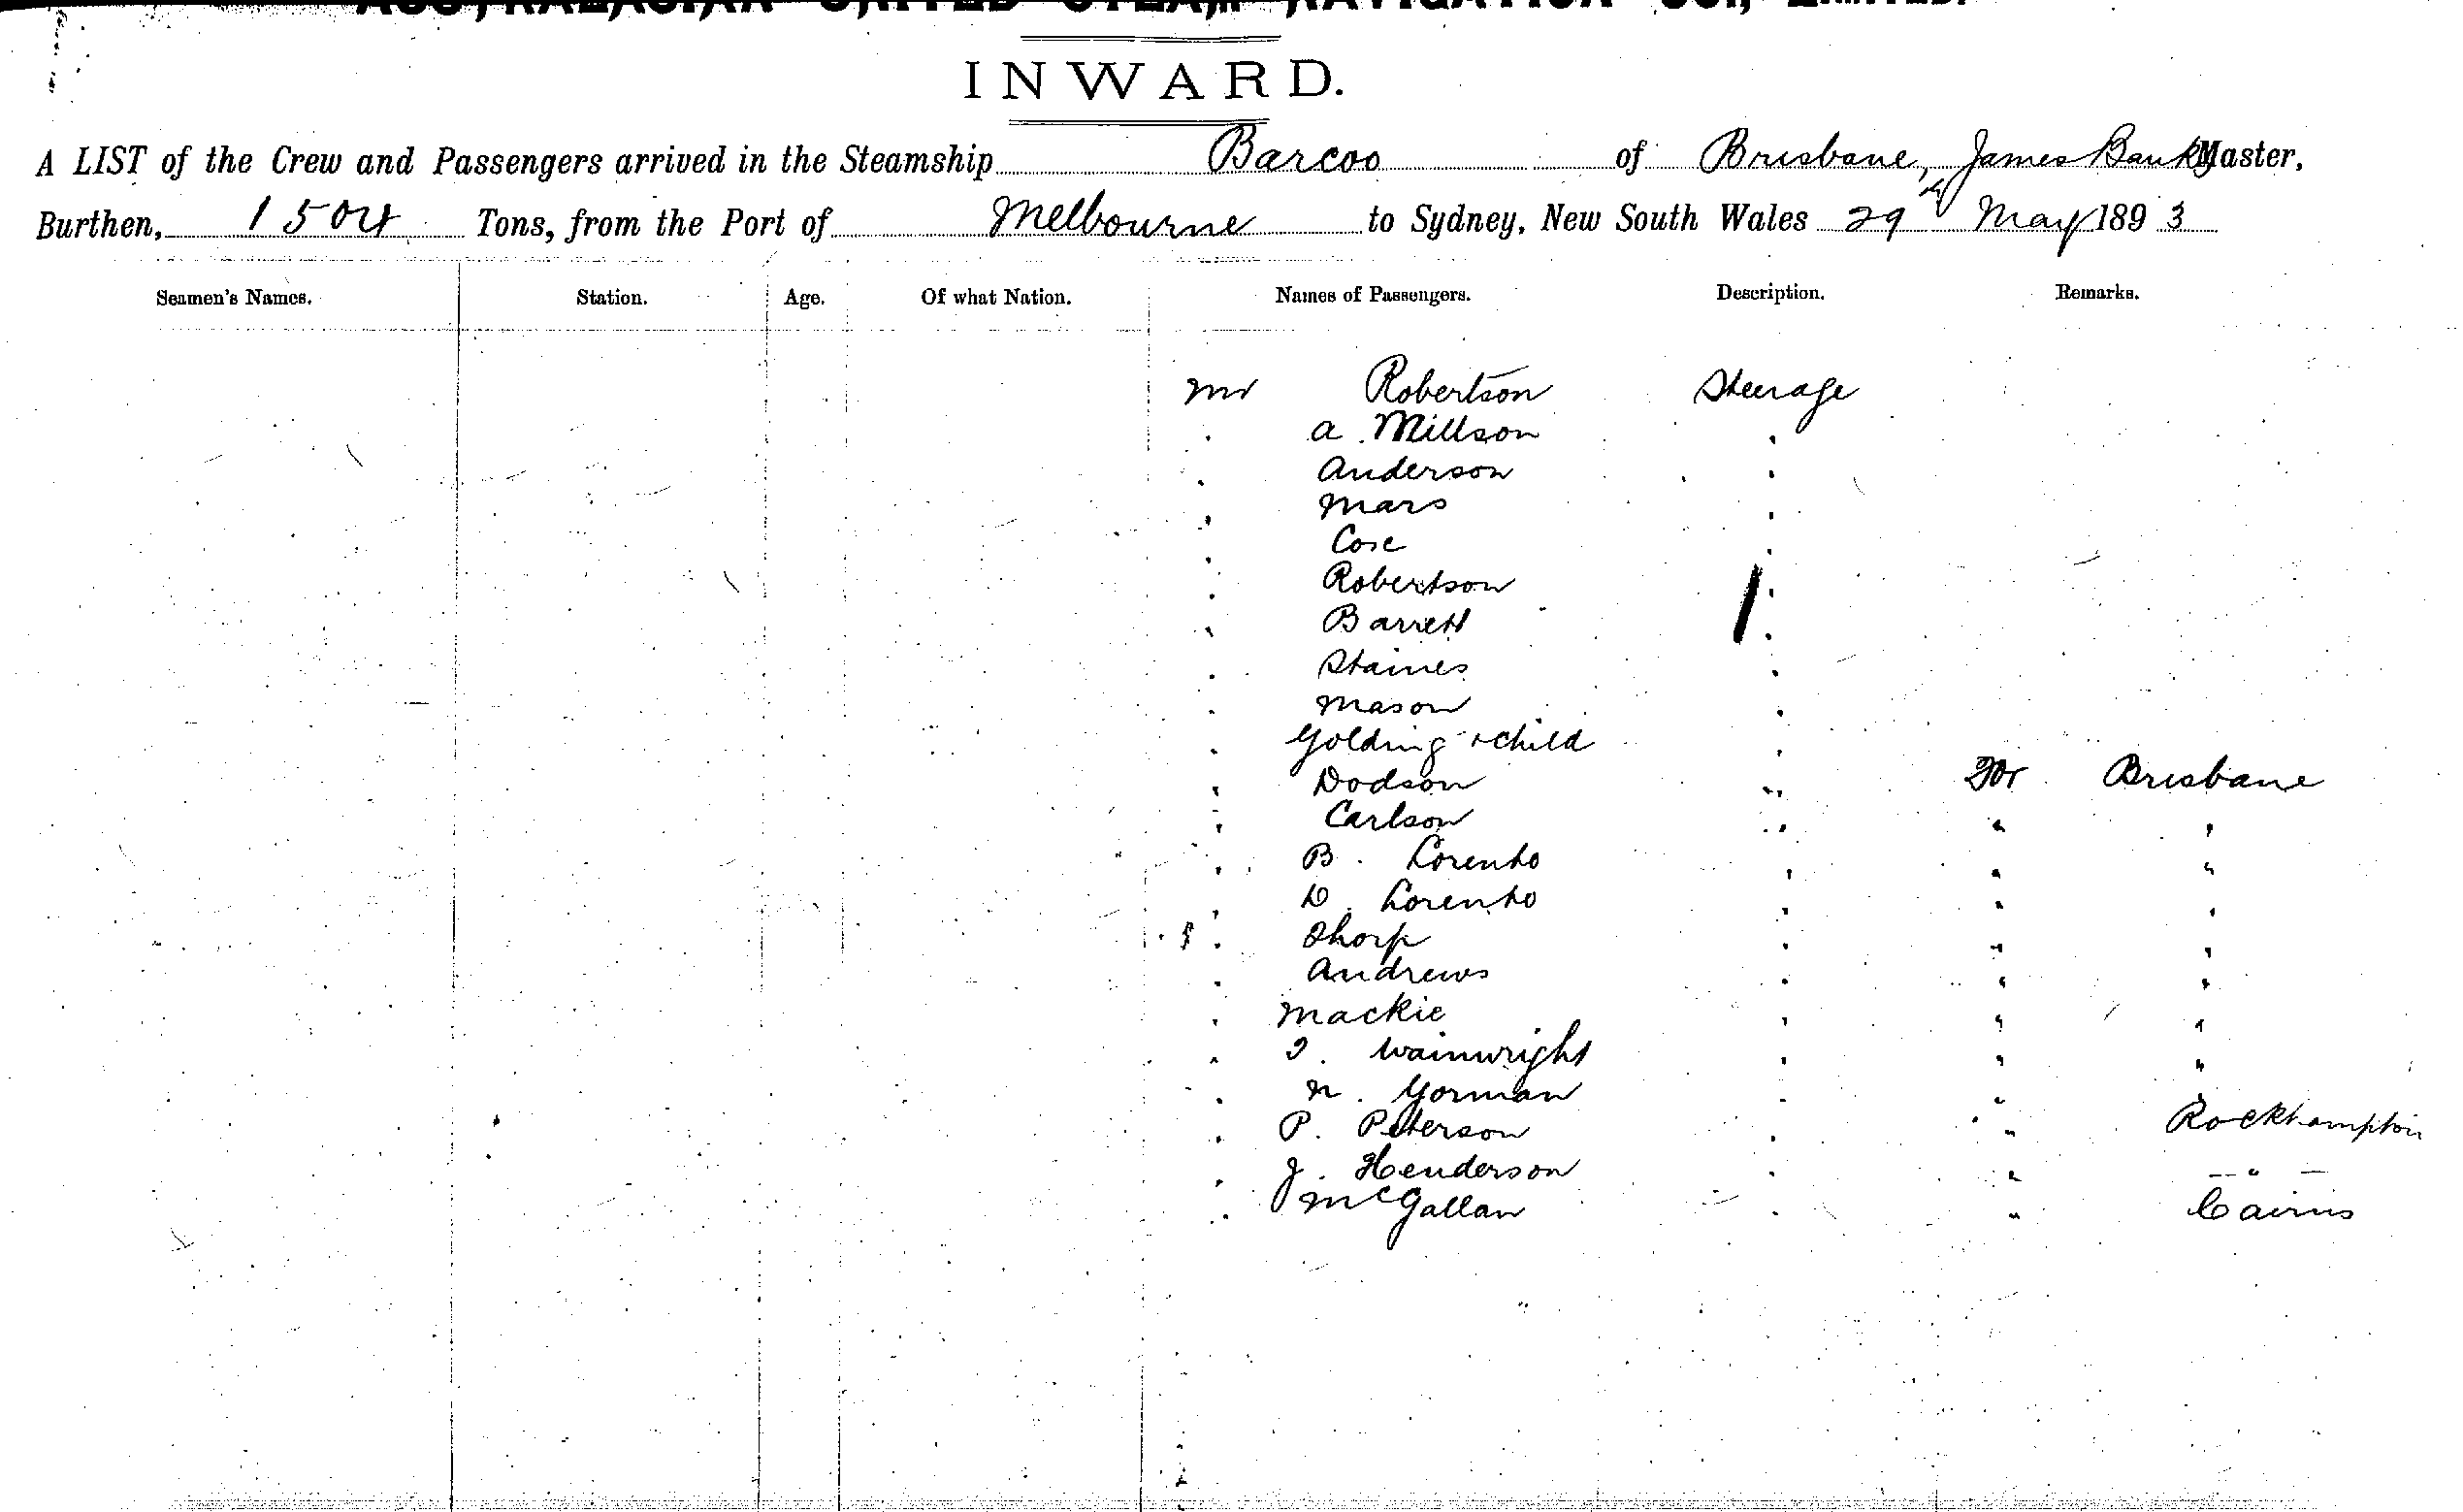 AUSTRALASIAN UNITED STEAM NAVIGATION CO., LIMITED.
INWARD.
A LIST of the Crew and Passengers arrived in the Steamship Barcoo of Brisbane, James Banks Master,
Burthen, 1504 Tons, from the Port of Melbourne to Sydney, New South Wales 29th May 1893
Seamen's Names. Station. Age. Of what Nation. Names of Passengers. Description. Remarks.
Mr Robertson Steerage
" A. Millson "
" Anderson "
" Mars "
" "
" Robertson "
" Barrett "
" Staines "
" Mason "
" Golding & child "
" Dodson " For Brisbane
" Carlson " " "
" B. Lorento " " "
" D. Lorento " " "
" Thorp " " "
" Andrews " " "
" Mackie " " "
" Wainwright " " "
" N. Gorman " " "
" P. Peterson " " Rockhampton
" J. Henderson " " "
" McGallan " " Cairns